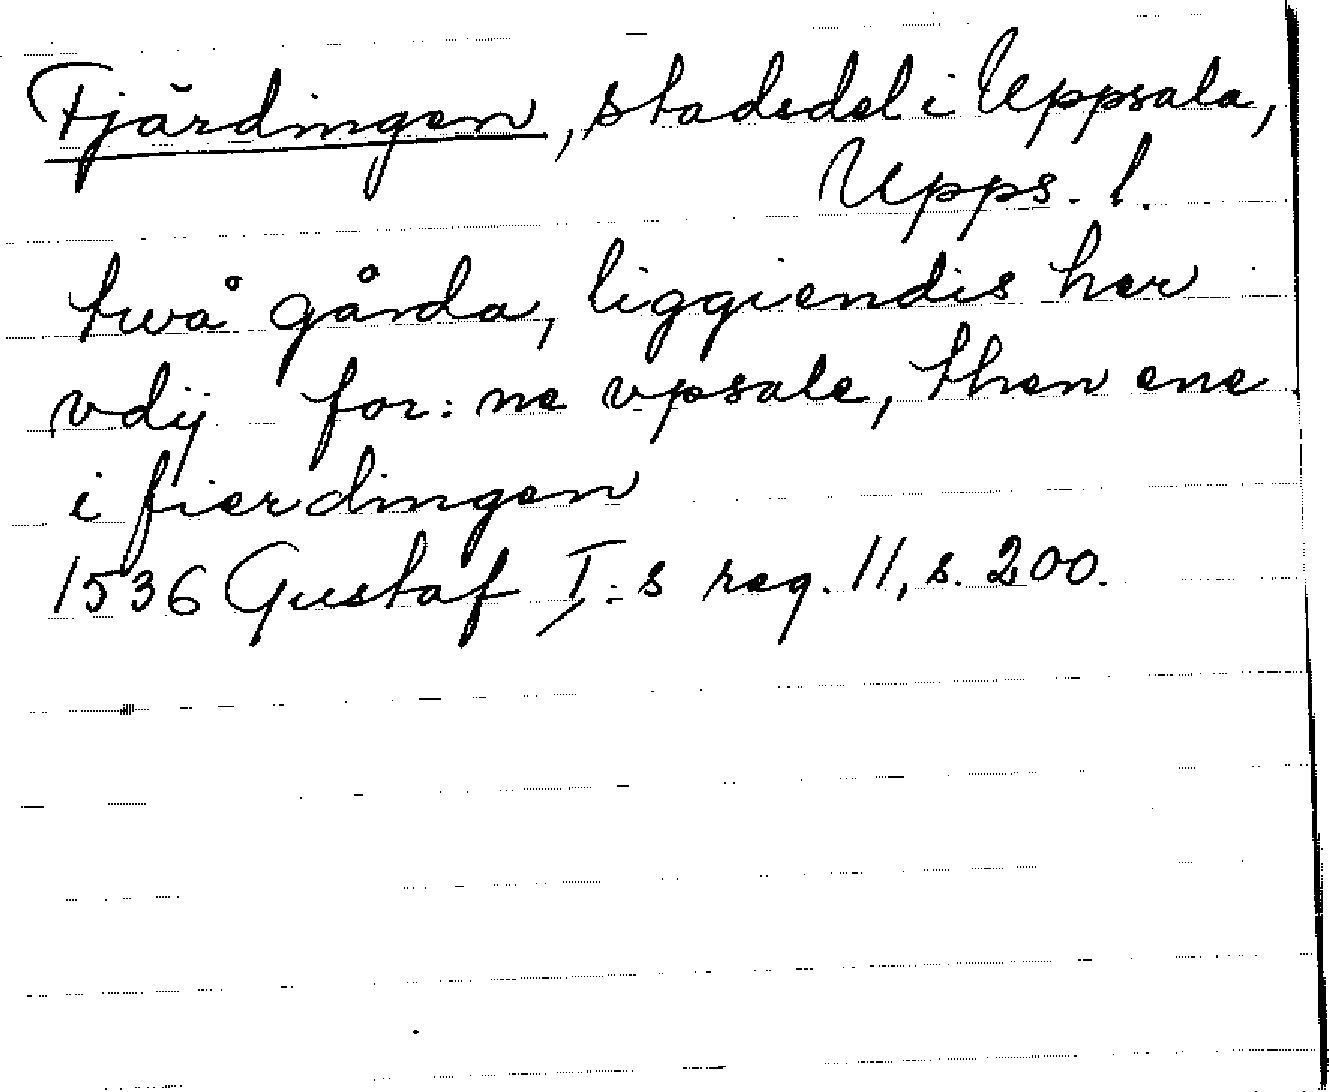 Fjärdingen, stadsdel i Uppsala,
Upps. l.
twå gårda, liggiendis her
vdij for: ne vpsale, then ene
i fierdingen
1536 Gustaf I:s reg. 11, s. 200.